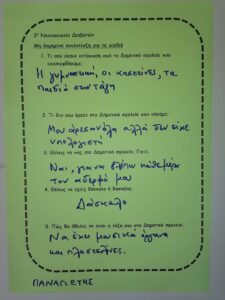 3ο Νηπιαγωγείο Διαβατών
Μη δομημένη συνέντευξη για τα παιδιά
1. Τι σου έκανε εντύπωση από το Δημοτικό σχολείο που επισκεφθήκαμε;
Η γυμναστική, οι κασετίνες, τα
παιδιά στην τάξη
2. Τι δεν σου άρεσε στο Δημοτικό σχολείο που πήγαμε;
Μου άρεσαν όλα αλλά δεν είχε
υπολογιστή
3. Θέλεις να πας στο Δημοτικό σχολείο, Γιατί;
Ναι, για να βλέπω κάθε μέρα
τον αδερφό μου
4. Θέλεις να έχεις δάσκαλο ή δασκάλα;
Δάσκαλο
5. Πώς θα ήθελες να είναι η τάξη σου στο Δημοτικό σχολείο;
Να έχει μουσικά όργανα
και πλαστελίνες.
ΠΑΝΑΓΙΩΤΗΣ